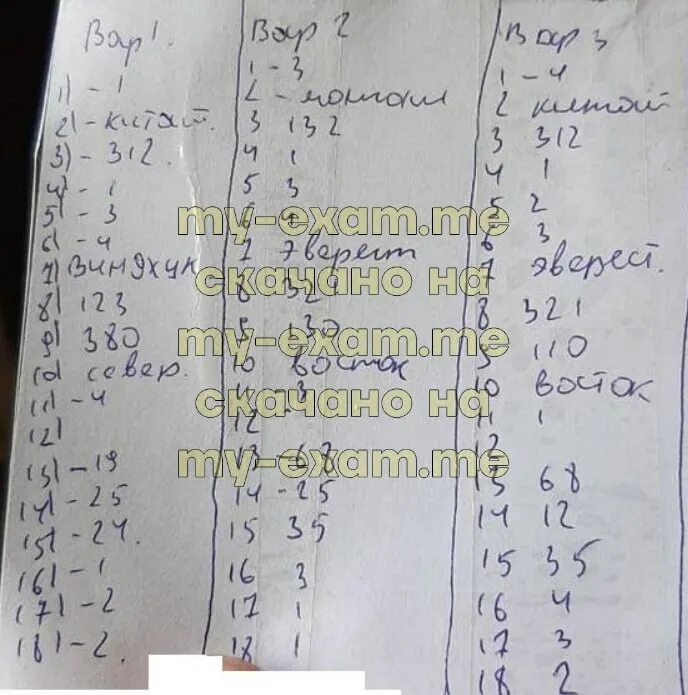 Вар 1.
1) - 1
2) - китай.
3) - 312.
4) - 1
5) - 3
6) - 4
7) Виняхун
8) 123
9) 380
10) север.
11) - 4
12)
13) - 19
14) - 25
15) - 24.
16) - 1
17) - 2
18) - 2.
Вар 2
1 - 3
2 -
3 132
4 1
5 3
6 4
7 эверест
8
9 130
10 восток
11 - 3
12 -
13 - 68
14 - 25
15 35
16 3
17 1
18 1
Вар 3
1 - 4
2 китай
3 312
4 1
5 2
6 3
7 эверест.
8 321
9 110
10 восток
11 1
12
13 68
14 12
15 35
16 4
17 3
18 2
my-exam.me
скачано на
my-exam.me
скачано на
my-exam.me